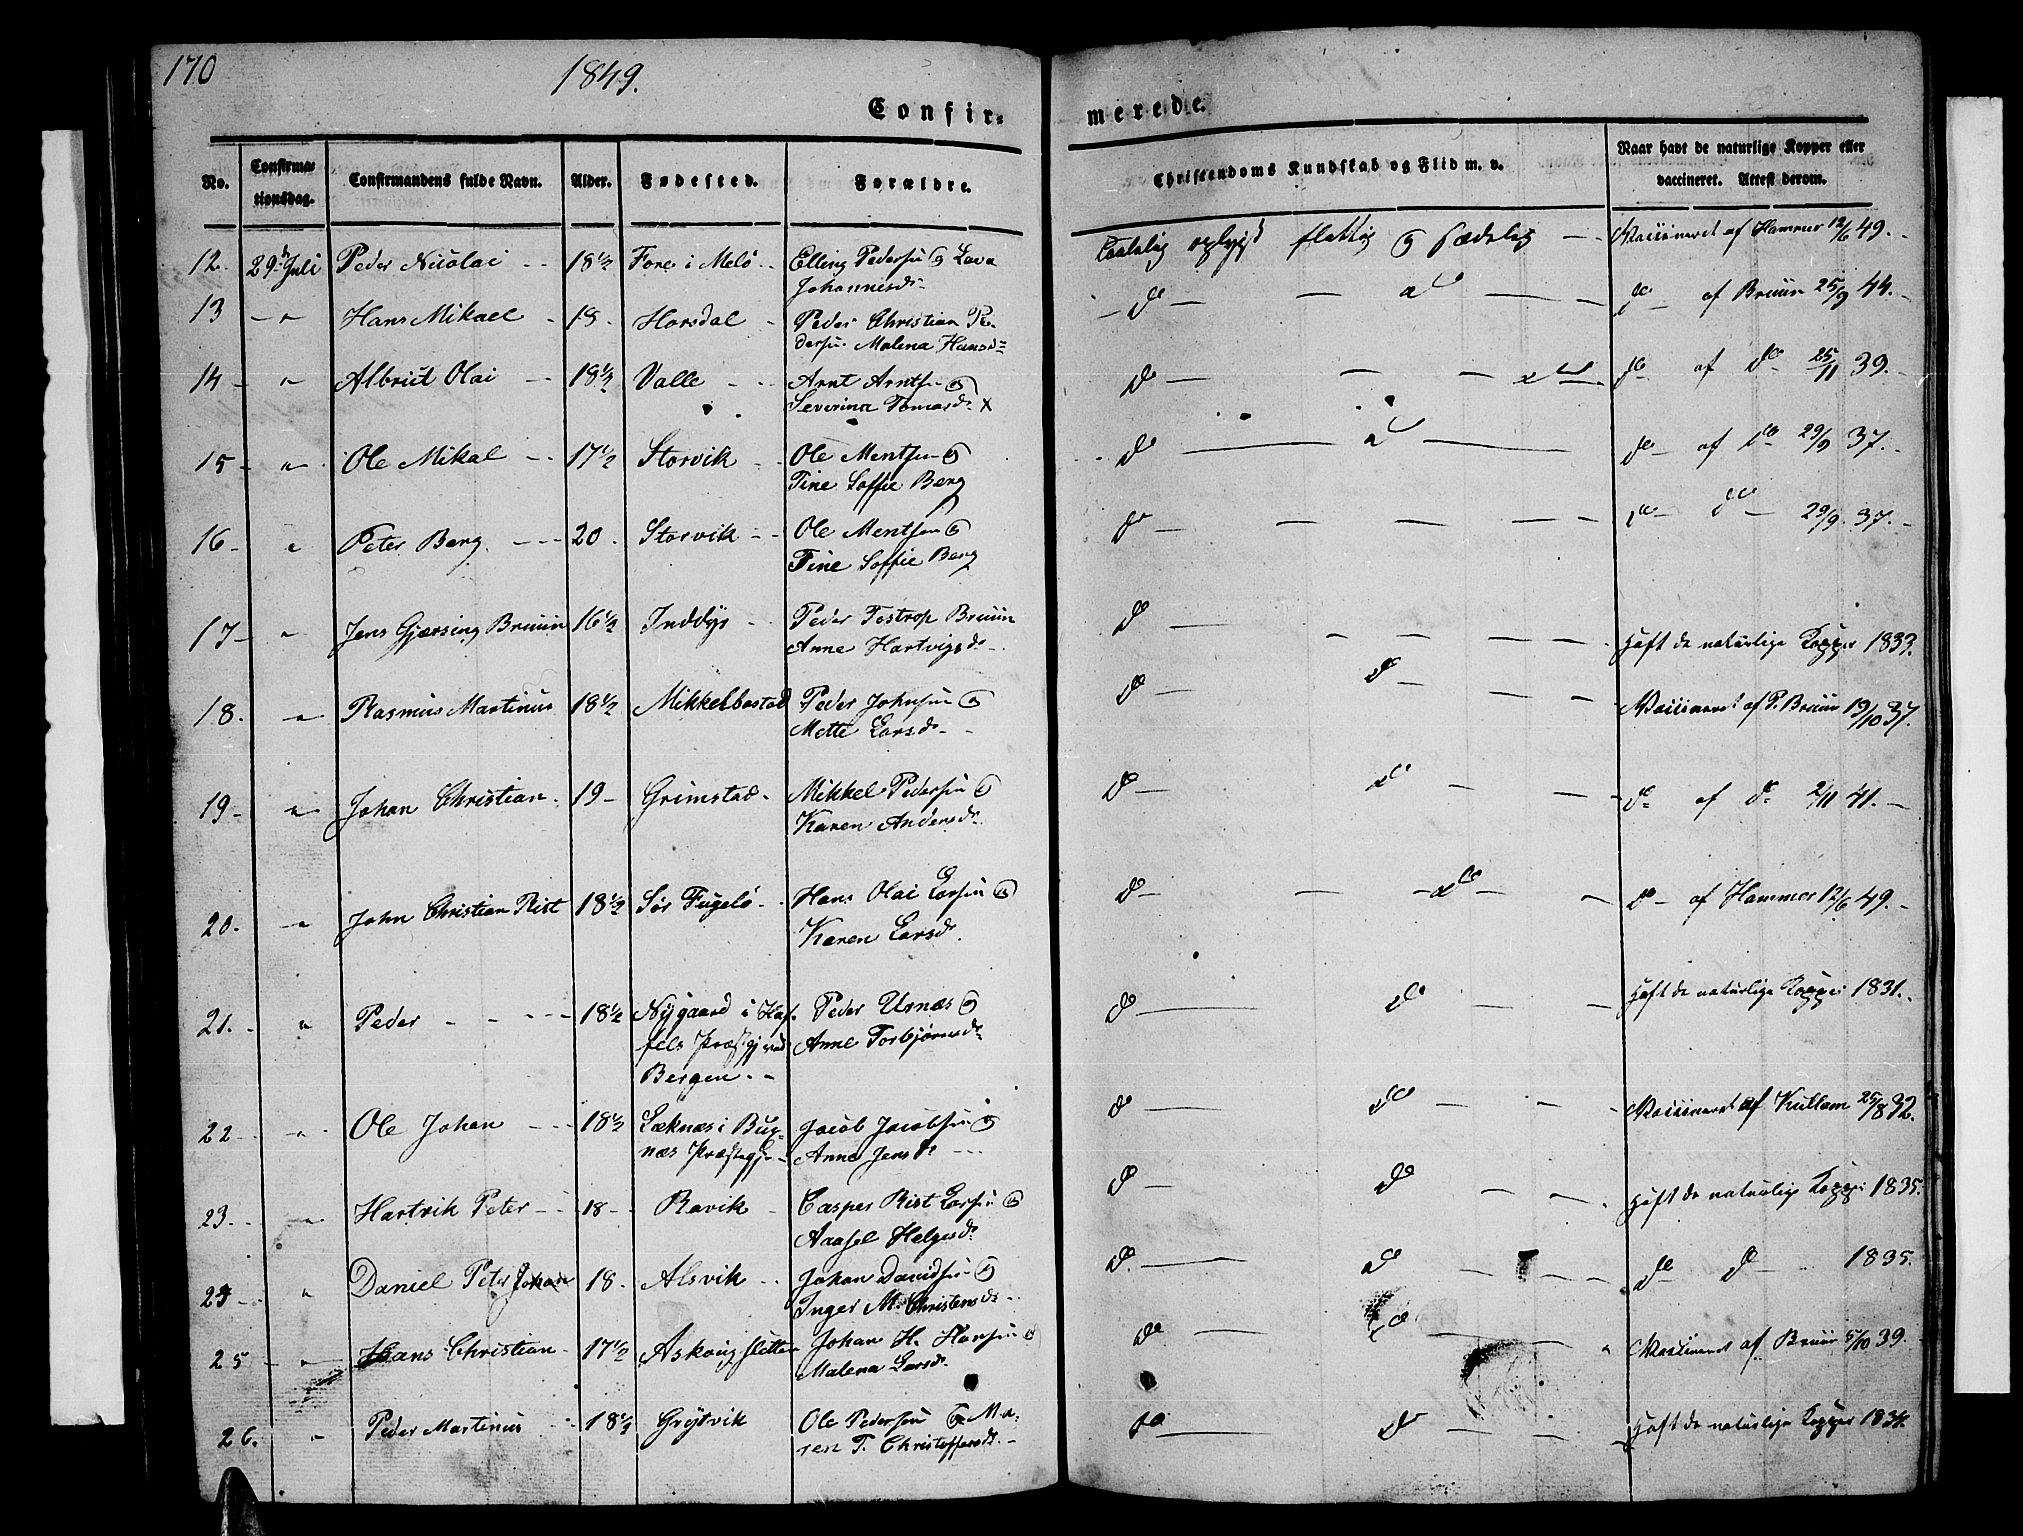 170
1849.
Confir= merede.
No. Confirma=tionsdag. Confirmandens fulde Navn. Alder. Fødested. Forældre. Christendoms Kundskab og Flid m. v. Naar havt de naturlige Kopper eller vaccineret. Attest derom.
12. 29de Juli Peder Nicolai - - 18 1/2 Fore i Melø - Elling Pedersen og Lava
Johannesdr.
taalelig oplyst flittig og sædelig - Vaccineret af Hammer 12/6 49. -
13 - " Hans Mikael - 18 - Horsdal - Peder Christian Pe-
dersen. Malena Hansd=
- do - - do - - do - af Bruun 25/9 44. -
14 - " Olai - 18 1/2 Valle - - Arnt Arntsen og
Severina Tomasdr. x
do - - - do - do - af do - 25/11 39. -
15 - " Ole Mikal - - 17 1/2 Storvik - Ole Mentsen og
Tine Soffie Berg
do - do - do - af do 29/9 37. -
16 - " Peter Berg. - - - 20 - Storvik - - Ole Mentsen og
Tine Soffie Berg
do - - - - - do - do - 29/9. 37. -
17 - " Jens Gjærsing Bruun 16 1/2 Inddyr - Peder Testrop Bruun
Anne Hartvigsdr. -
do - - - - - haft de naturlige Kopper 1833.
18. " Rasmus Martinus 18 1/2 Mikkelbostad Peder Johnsen og
Mette Larsdr. -
do - do - - - Vaccineret af P. Bruun 19/10 37.
19 - " Johan Christian. 19 - Grimstad - Mikkel Pedersen og
Karen Andersdr.
do - do - - - do - af do - 2/11 41. -
20. - " John Christian Rist 18 1/2 Sør Fugelø - Hans Olai Larsen og
Karen Larsdr.
do - - - do - - do - af Hammer 12/6 49. -
21. - " Peder - - - - 18 1/2 Nygaard i Haf- Peder Urnæs og
fels Præstgj ved Anne Torbjørnsdr.
Bergen. - -
do - do - - haft de naturlige Kopper 1831. -
22 - - " Ole Johan - - - 18 1/2 Læknæs i Bux- Jacob Jacobsen og
næs Præstegj - Anne Jensdr. - - -
do - do - - - Vaccineret af 25/8 32.
23. - - " Hartvik Peter - - 18 - - Ravik - Casper Rist Larsen og
Aasel Helgesdr.
do - do - - haft de naturlige Kopper 1835.
23 - - " Daniel Peter Johan 18 - Alsvik - - Johan Danidsen og
Inger M. Christensdr. -
do. - do - - - do do - 1835.
25 - " Hans Christian - 17 1/2 Askougsletten Johan H. Hansen og
Malena Larsdr.
do - do - - - Vaccineret af Bruun 5/10 39.
26. " Peder Martinus - 18 1/2 Grytvik Ole Pedersen og Ma-
ren T. Christoffersdr. -
do - do - - - haft de naturlige Kopper